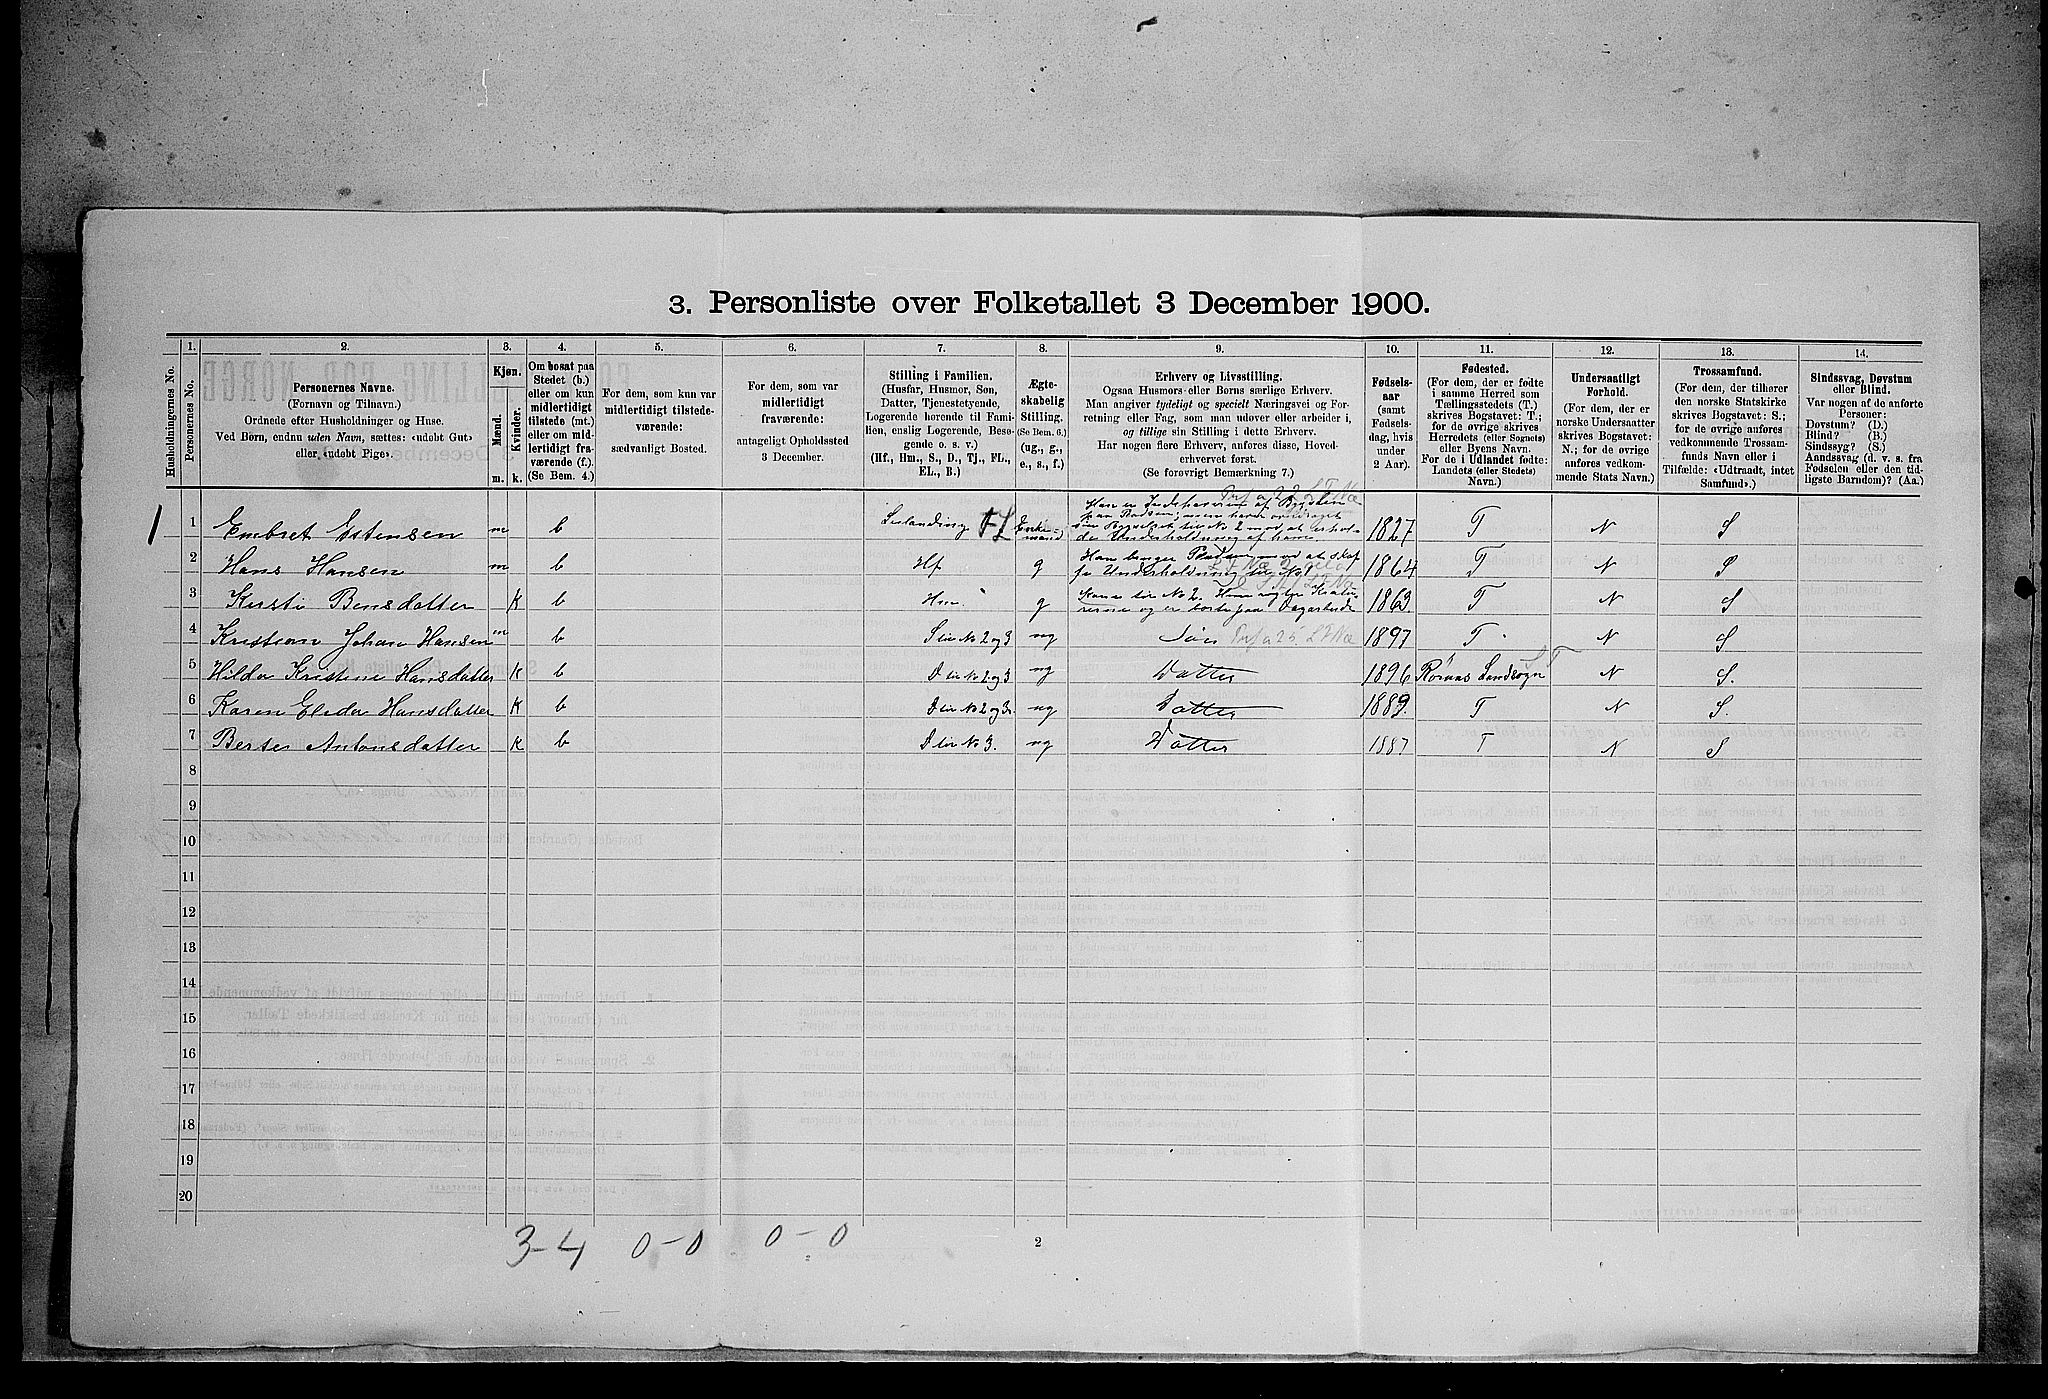 3. Personliste over Folketallet 3 December 1900.
Husholdningernes No.
1. Personernes No.
2. Personernes Navne.
(Fornavn og Tilnavn.)
Ordnede efter Husholdninger og Huse.
Ved Børn, endnu uden Navn, sættes: «udøbt Gut»
eller «udøbt Pige».
3. Kjøn.
Mænd. Kvinder.
m. k.
4. Om bosat paa
Stedet (b.)
eller om kun
midlertidigt
tilstede (mt.)
eller om mid-
lertidigt fra-
værende (f.)
(Se Bem. 4.)
5. For dem, som kun var
midlertidigt tilstede-
værende:
sædvanligt Bosted.
6. For dem, som var
midlertidigt
fraværende:
antageligt Opholdssted
3 December.
7. Stilling i Familien.
(Husfar, Husmor, Søn,
Datter, Tjenestetyende,
Logerende hørende til Fami-
lien, enslig Logerende, Besø-
gende o. s. v.)
(Hf., Hm., S., D., Tj., FL.,
EL., B.)
8. Ægte-
skabelig
Stilling.
(Se Bem. 6.)
(ug., g.,
e., s., f.)
9. Erhverv og Livsstilling.
Ogsaa Husmors- eller Børns særlige Erhverv.
Man angiver tydeligt og specielt Næringsvei og For-
retning eller Fag, som man udøver eller arbeider i,
og tillige sin Stilling i dette Erhverv.
Har nogen flere Erhverv, anføres disse, Hoved-
erhvervet først.
(Se forøvrigt Bemærkning 7.)
10. Fødsels-
aar
(samt
Fødsels-
dag, hvis
under
2 Aar).
11. Fødested.
(For dem, der er fødte
i samme Herred som
Tællingsstedets (T.)
skrives Bogstavet: T.;
for de øvrige skrives
Herredets (eller Sognets)
eller Byens Navn.
For de i Udlandet fødte:
Landets (eller Stedets)
Navn.)
12. Undersaatligt
Forhold.
(For dem, der er
norske Undersaatter
skrives Bogstavet:
N.; for de øvrige
anføres vedkom-
mende Stats Navn.)
13. Trossamfund.
(For dem, der tilhører
den norske Statskirke
skrives Bogstavet: S.;
for de øvrige anføres
vedkommende Trossam-
funds Navn eller i
Tilfælde: «Udtraadt, intet
Samfund».)
14. Sindssvag, Døvstum
eller Blind.
Var nogen af de anførte
Personer:
Døvstum? (D.)
Blind? (B.)
Sindssyg? (S.)
Aandssvag (d. v. s. fra
Fødselen eller den tid-
ligste Barndom)? (Aa.)
1 1 Embret Estensen m b FL Enke-
mand 1827 T N S
2 Hans Hansen m b Hf g 1864 T N S
3 Kersti Bensdatter K b Hm. g 1863 T N S
4 Kristian Johan Hansen m b S til No 2 og 3 ug 1897 T N S
5 Hilda Kristine Hansdatter K b D til No 2 og 3 ug Datter 1896 Røraas Landsogn T N S.
6 Karen Elida Hansdatter K b D til No 2 og 3. ug Datter 1889. T N S.
7 Antonsdatter K b D til No 3. ug Datter 1887 T N S
8
9
10
11
12
13
14
15
16
17
18
19
20
3-4 0-0 0-0
2